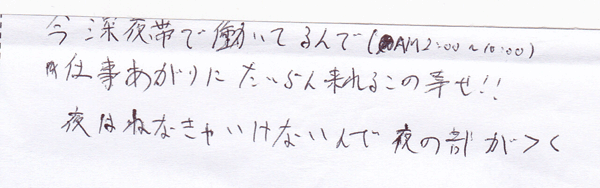 今深夜帯で働いてるんで(AM2:00~10:00)
仕事あがりにたいらん来れるこの幸せ!!
夜はねなきゃいけないんで夜の部がつく